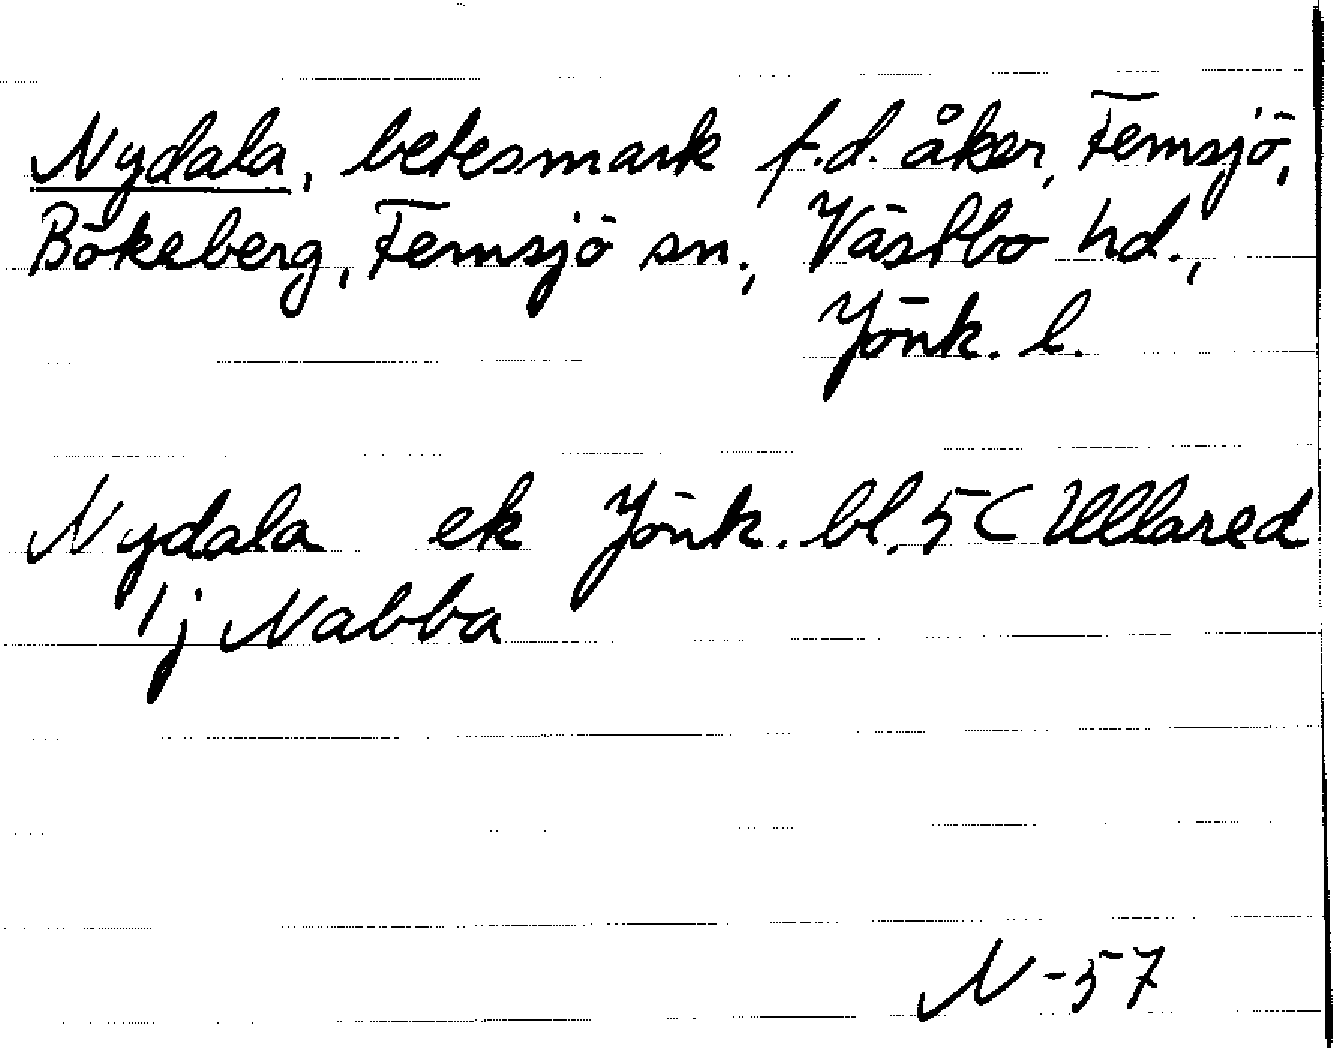 Nydala, betesmark f.d. åker, Femsjö,
Bökeberg, Femsjö sn., Västbo hd.,
Jönk. l.
Nydala ek Jönk. bl. 5C Ullared
1j Nabba
N-57